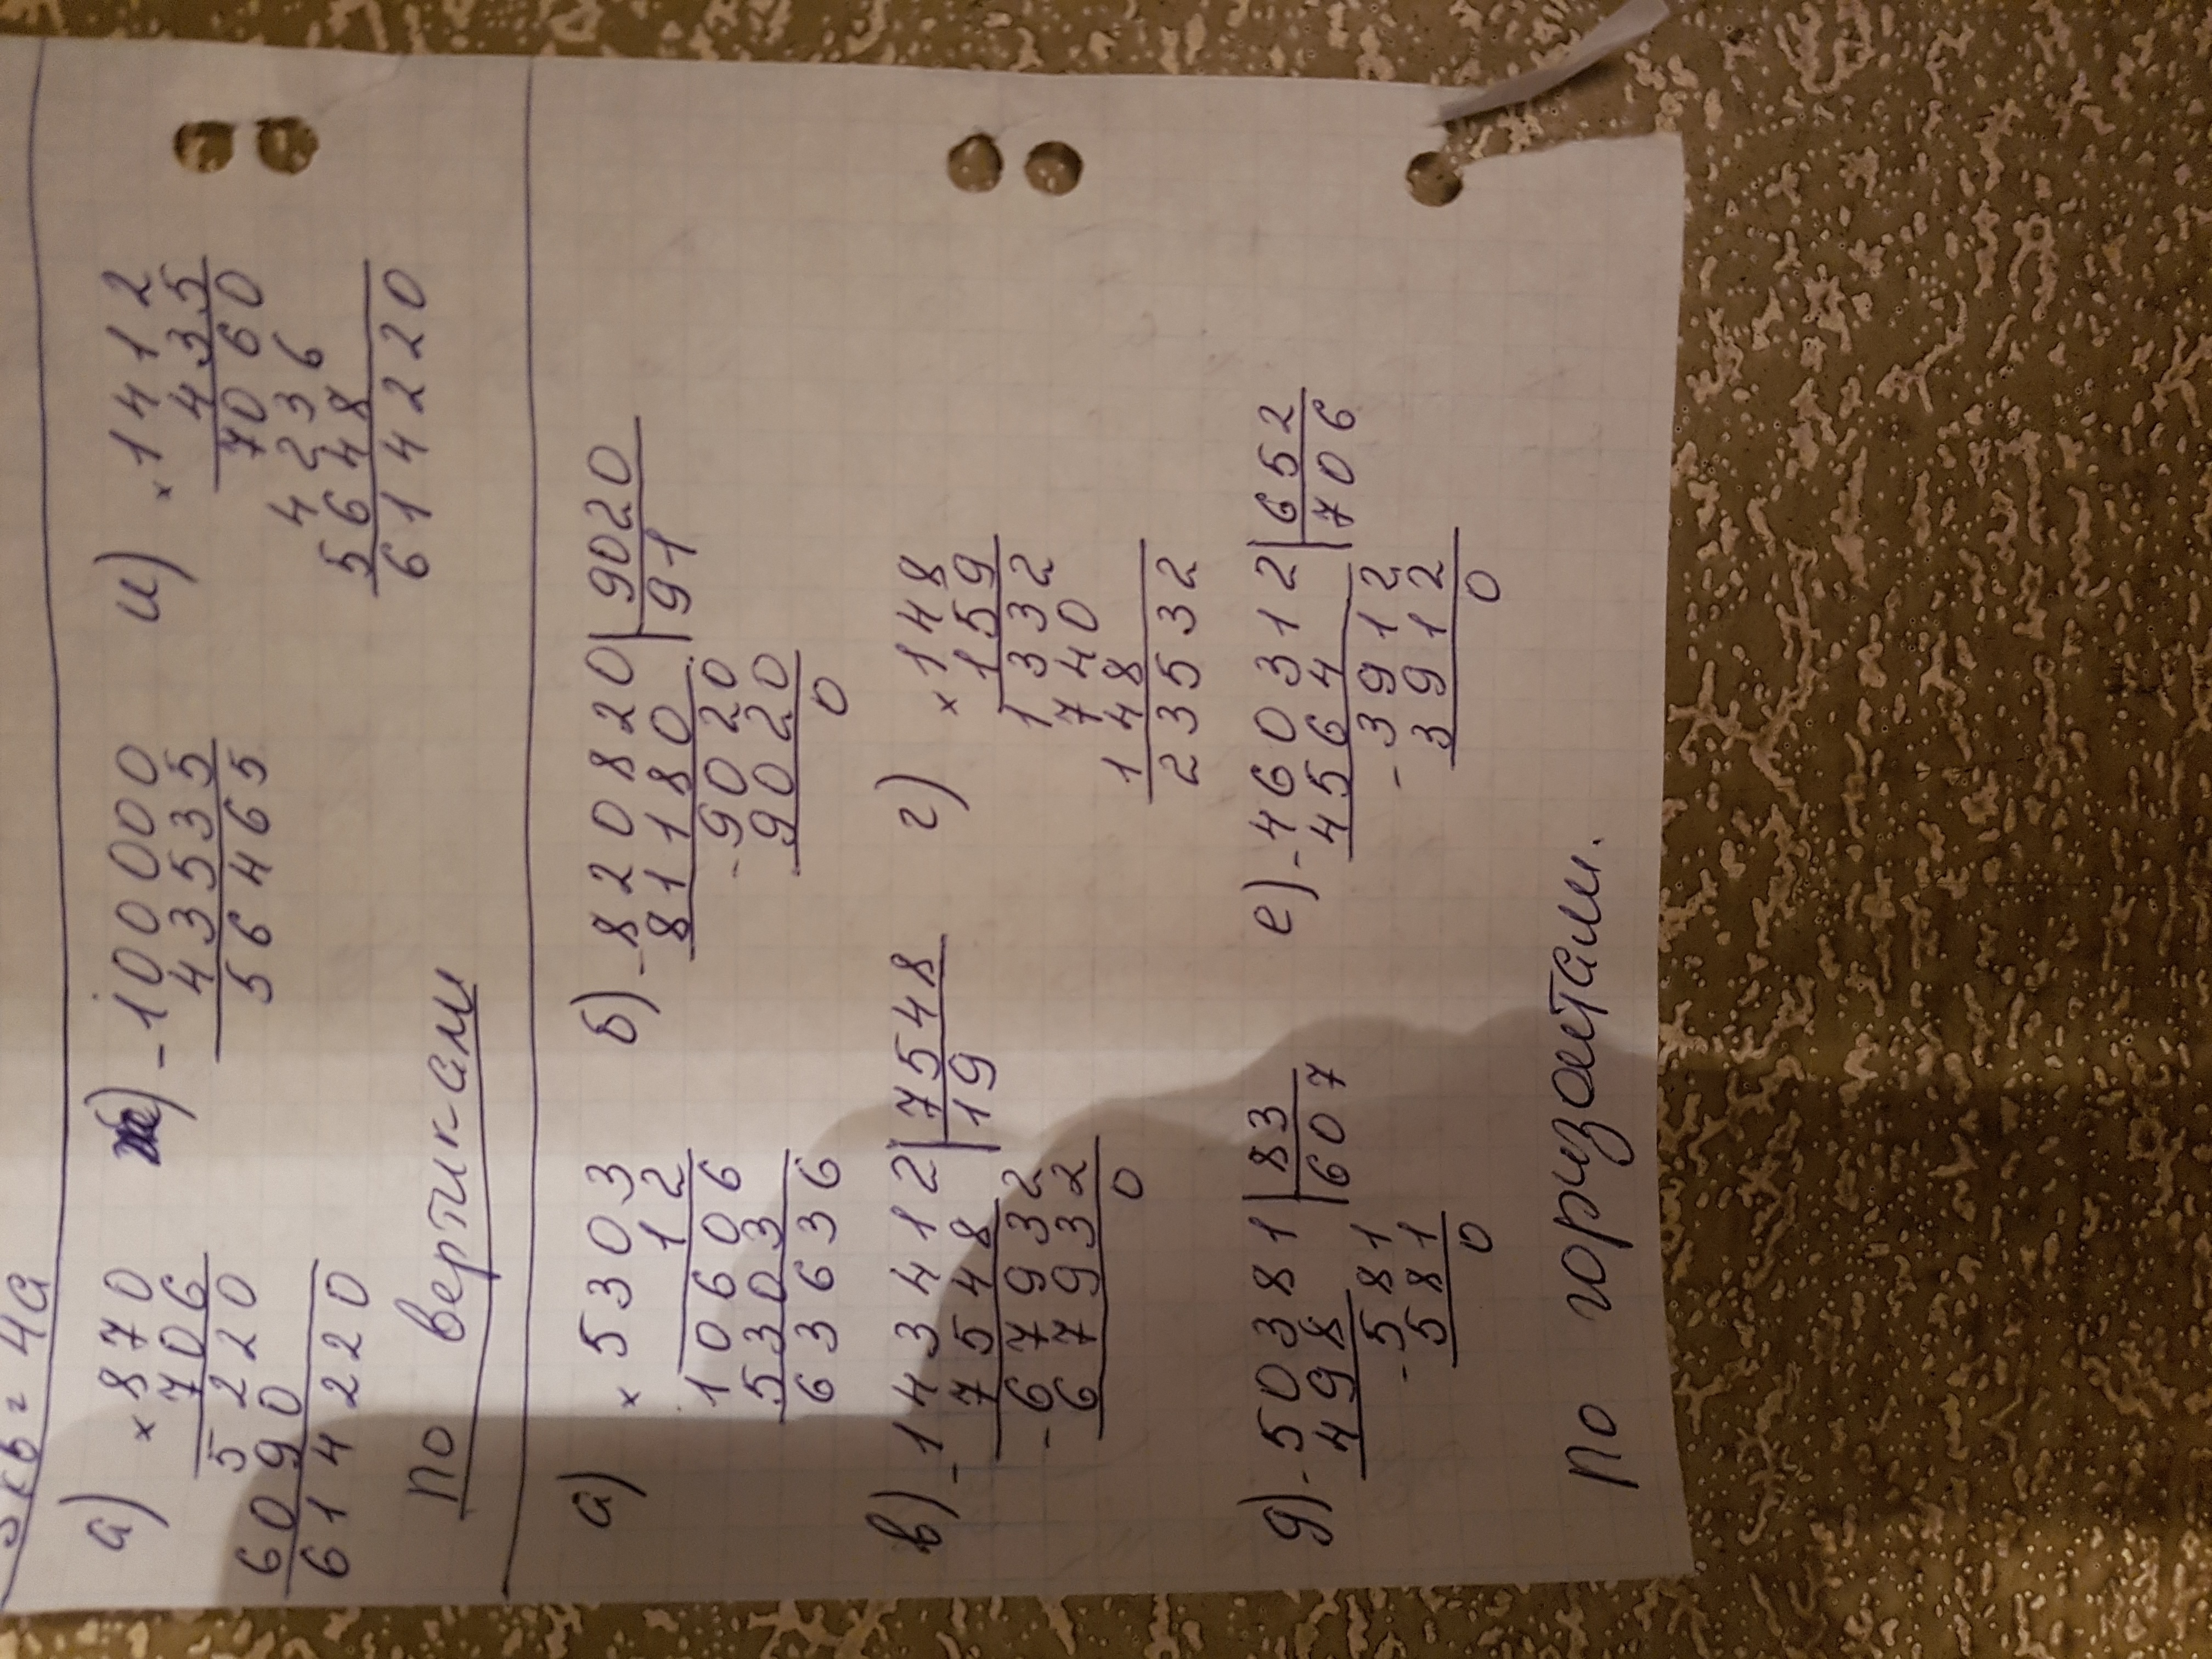 3 кв = 4а
а) × 870   ж) - 100000   и) × 1412
706   43535   435
5220   56465   7060
6090   4236
614220   5648
614220
по вертикали
а) × 5303   б) - 820820 | 9020
12   81180   91
10606   - 9020
5303   9020
63636   0
в) - 143412 | 7548   г) × 148
7548   19   159
- 67932   1332
67932   740
0   148
23532
д) - 50381 | 83   е) - 460312 | 652
498   607   4564   706
- 581   - 3912
581   3912
0   0
по горизонтали.